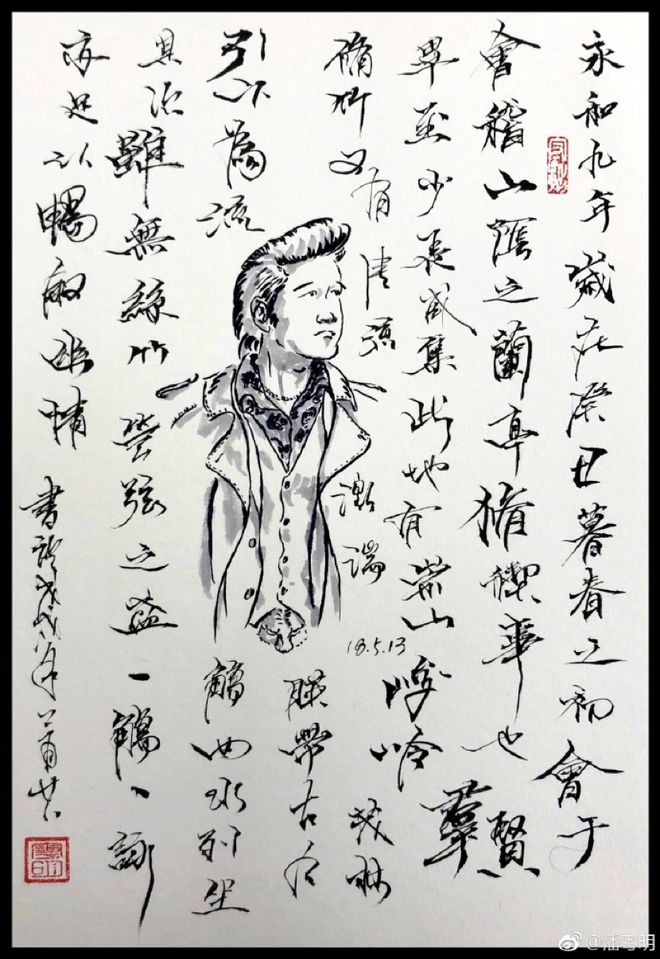 永和九年歲在癸丑暮春之初會于
會稽山陰之蘭亭脩稧事也羣賢
畢至少長咸集此地有崇山峻領
茂林
脩竹又有清流激湍
暎帶左右
引以為流
觴曲水列坐
其次雖無絲竹管弦之盛一觴一詠
亦足以暢敘幽情
書於戊戌年
18.5.13
@潘粤明